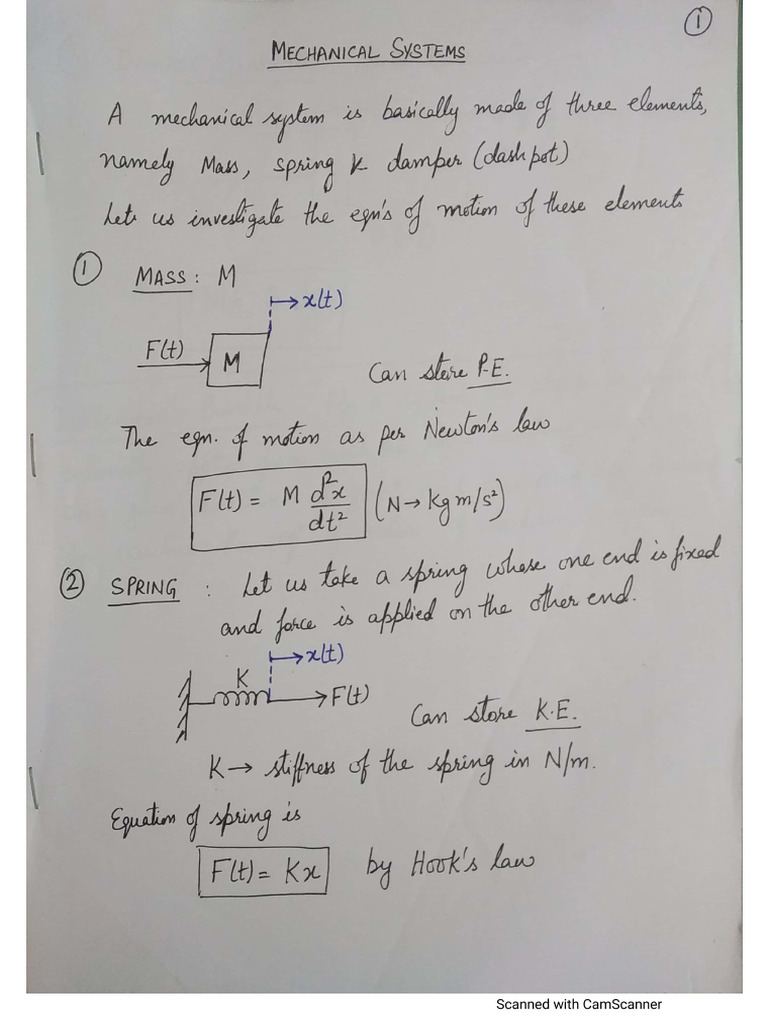 1
MECHANICAL SYSTEMS
A mechanical system is basically made of three elements,
namely Mass, spring & damper (dash pot)
Let us investigate the eqn's of motion of these elements
1 MASS: M
x(t)
F(t)
M
Can store P.E.
The eqn. of motion as per Newton's law
F(t) = M d²x/dt² (N→Kg m/s²)
2 SPRING : Let us take a spring whose one end is fixed
and force is applied on the other end.
x(t)
K
F(t)
Can store K.E.
K → stiffness of the spring in N/m.
Equation of spring is
F(t) = Kx by Hook's law
Scanned with CamScanner